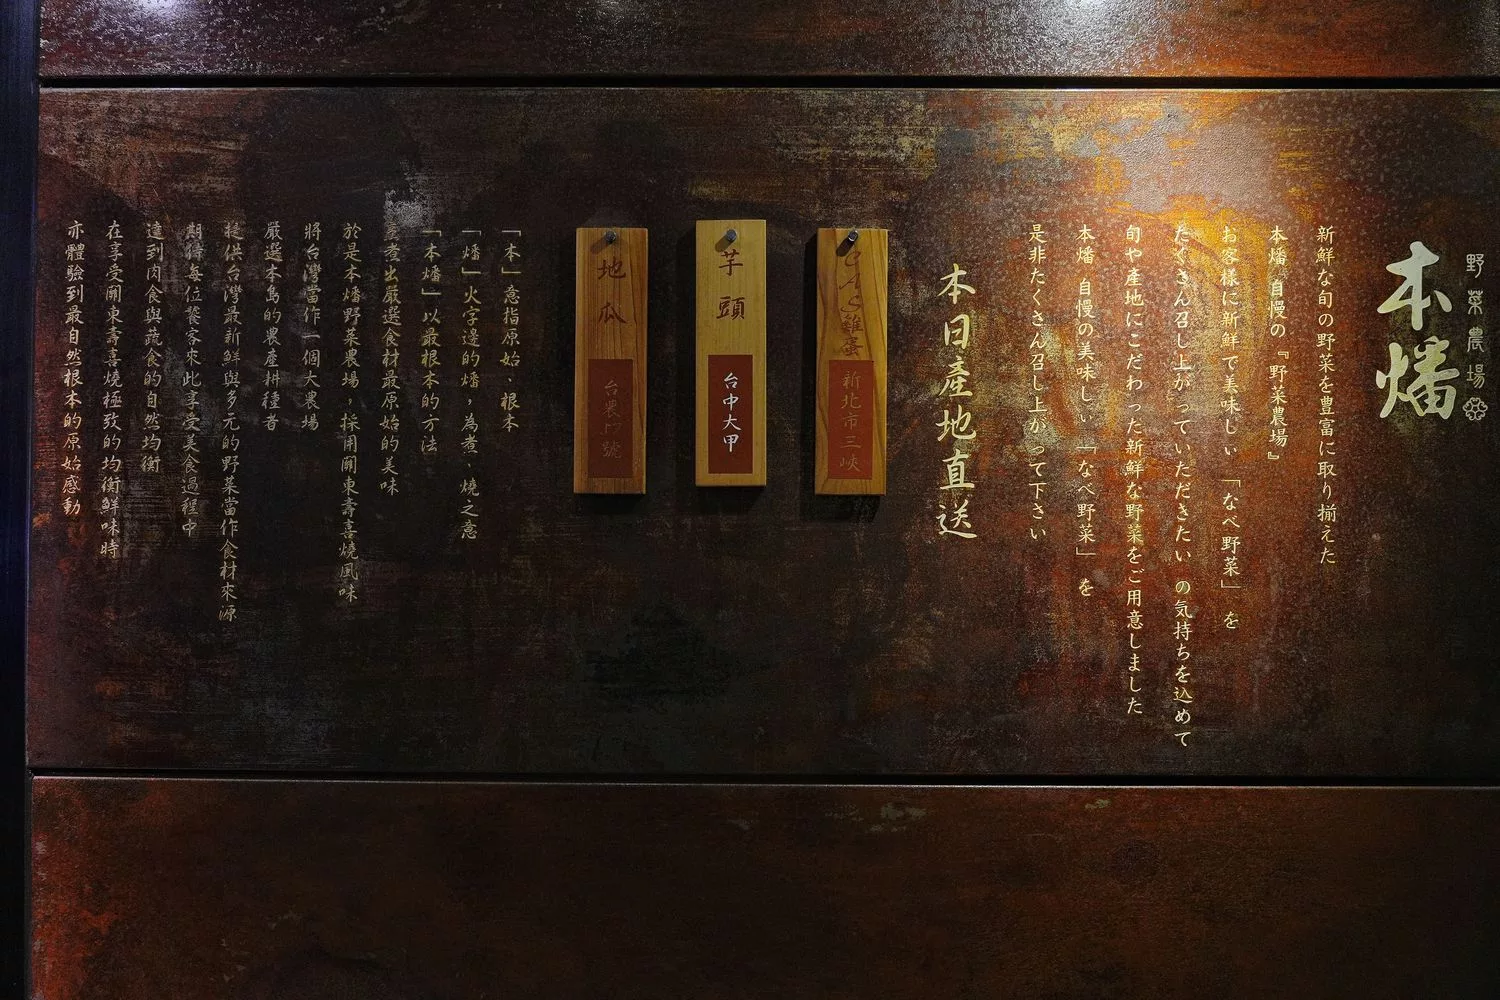 野菜農場
本燔
新鮮な旬の野菜を豊富に取り揃えた
本燔 自慢の『野菜農場』
お客様に新鮮で美味しい「なべ野菜」を
たくさん召し上がっていただきたい の気持ちを込めて
旬や産地にこだわった新鮮な野菜をご用意しました
本燔 自慢の美味しい「なべ野菜」を
是非たくさん召し上がって下さい
本日産地直送
CAS雞蛋
新北市三峽
芋頭
台中大甲
地瓜
台農57號
「本」意指原始、根本
「燔」火字邊的燔，為煮、燒之意
「本燔」以最根本的方法
烹煮出嚴選食材最原始的美味
於是本燔野菜農場，採用關東壽喜燒風味
將台灣當作一個大農場
嚴選本島的農產耕種者
提供台灣最新鮮與多元的野菜當作食材來源
期待每位饕客來此享受美食過程中
達到肉食與蔬食的自然均衡
在享受關東壽喜燒極致的均衡鮮味時
亦體驗到最自然根本的原始感動